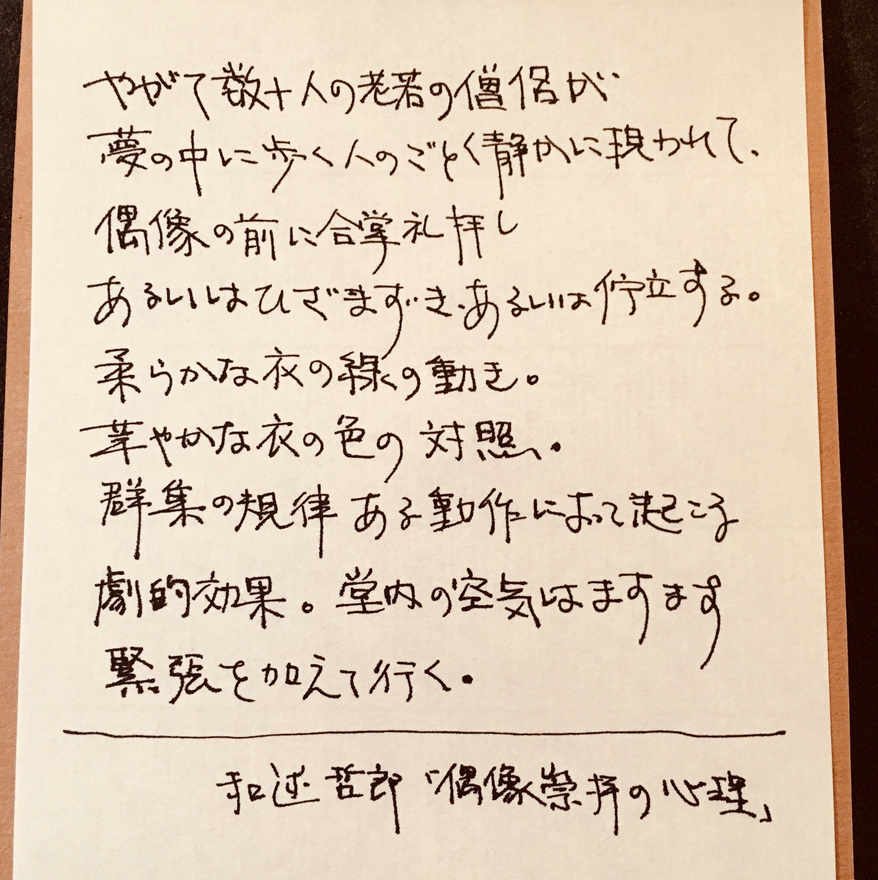 やがて数十人の老若の僧侶が
夢の中に歩く人のごとく静かに現われて、
偶像の前に合掌礼拝し
あるいはひざまずき、あるいは佇立する。
柔らかな衣の線の動き。
華やかな衣の色の対照。
群集の規律ある動作によって起こる
劇的効果。堂内の空気はますます
緊張を加えて行く。
和辻哲郎「偶像崇拝の心理」